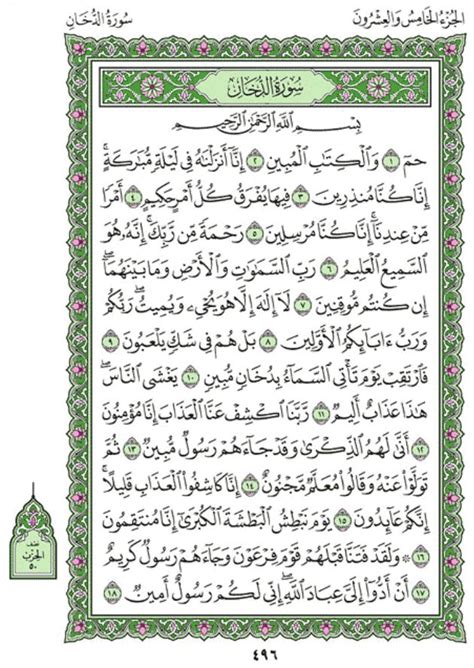 سُورَةُ الدُّخَانِ
الجُزْءُ الخَامِسُ وَالعِشْرُونَ
سُورَةُ الدُّخَانِ
بِسْمِ اللَّهِ الرَّحْمَٰنِ الرَّحِيمِ
حمٓ ١ وَٱلْكِتَٰبِ ٱلْمُبِينِ ٢ إِنَّآ أَنزَلْنَٰهُ فِى لَيْلَةٍ مُّبَٰرَكَةٍ ۚ
إِنَّا كُنَّا مُنذِرِينَ ٣ فِيهَا يُفْرَقُ كُلُّ أَمْرٍ حَكِيمٍ ٤ أَمْرًا
مِّنْ عِندِنَآ ۚ إِنَّا كُنَّا مُرْسِلِينَ ٥ رَحْمَةً مِّن رَّبِّكَ ۚ إِنَّهُۥ هُوَ
ٱلسَّمِيعُ ٱلْعَلِيمُ ٦ رَبِّ ٱلسَّمَٰوَٰتِ وَٱلْأَرْضِ وَمَا بَيْنَهُمَآ ۖ
إِن كُنتُم مُّوقِنِينَ ٧ لَآ إِلَٰهَ إِلَّا هُوَ يُحْىِۦ وَيُمِيتُ ۖ رَبُّكُمْ
وَرَبُّ ءَابَآئِكُمُ ٱلْأَوَّلِينَ ٨ بَلْ هُمْ فِى شَكٍّ يَلْعَبُونَ ٩
فَٱرْتَقِبْ يَوْمَ تَأْتِى ٱلسَّمَآءُ بِدُخَانٍ مُّبِينٍ ١٠ يَغْشَى ٱلنَّاسَ ۖ
هَٰذَا عَذَابٌ أَلِيمٌ ١١ رَّبَّنَا ٱكْشِفْ عَنَّا ٱلْعَذَابَ إِنَّا مُؤْمِنُونَ
١٢ أَنَّىٰ لَهُمُ ٱلذِّكْرَىٰ وَقَدْ جَآءَهُمْ رَسُولٌ مُّبِينٌ ١٣ ثُمَّ
تَوَلَّوْا۟ عَنْهُ وَقَالُوا۟ مُعَلَّمٌ مَّجْنُونٌ ١٤ إِنَّا كَاشِفُوا۟ ٱلْعَذَابِ قَلِيلًا ۚ
إِنَّكُمْ عَآئِدُونَ ١٥ يَوْمَ نَبْطِشُ ٱلْبَطْشَةَ ٱلْكُبْرَىٰٓ إِنَّا مُنتَقِمُونَ
١٦ ۞ وَلَقَدْ فَتَنَّا قَبْلَهُمْ قَوْمَ فِرْعَوْنَ وَجَآءَهُمْ رَسُولٌ كَرِيمٌ
١٧ أَنْ أَدُّوٓا۟ إِلَىَّ عِبَادَ ٱللَّهِ ۖ إِنِّى لَكُمْ رَسُولٌ أَمِينٌ ١٨
نصف
الحزب
٥٠
٤٩٦